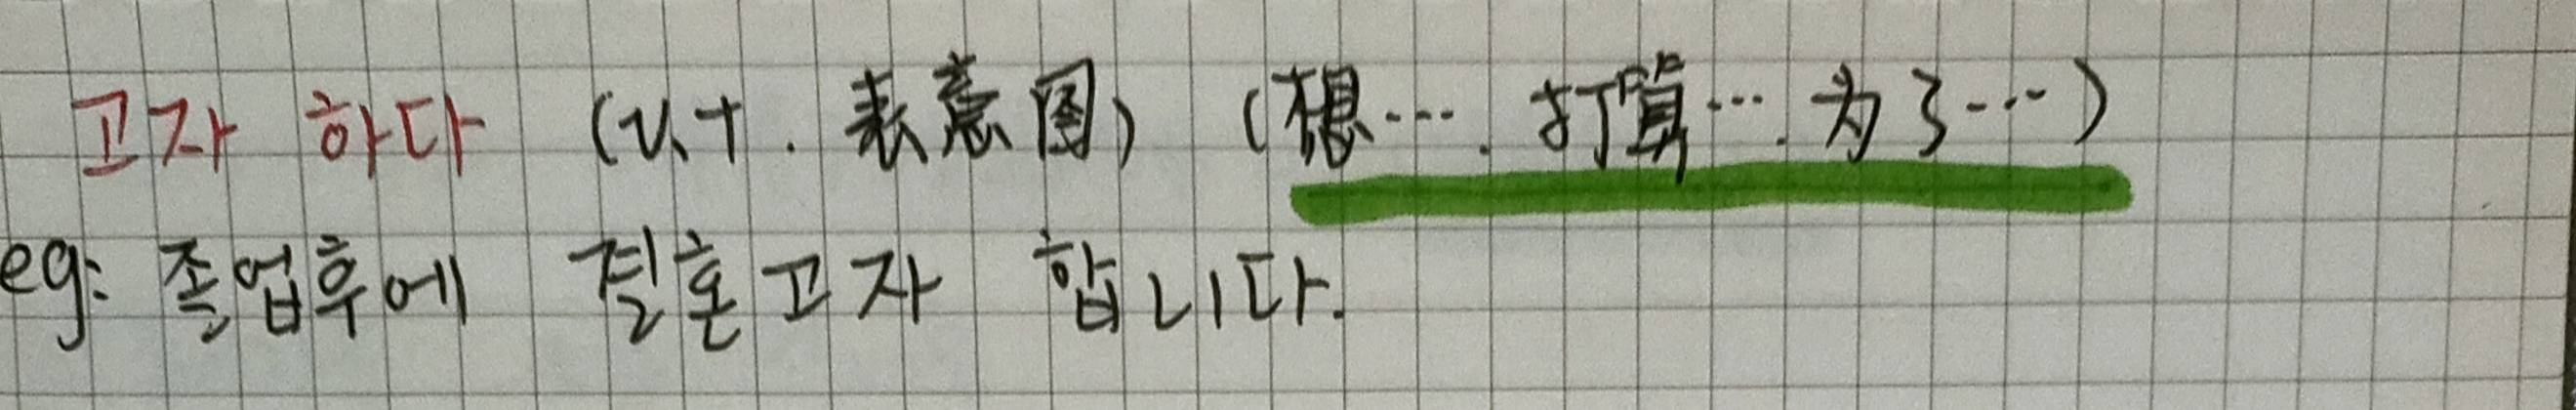 고자 하다 (v.+. 表意图) (想… . 打算… . 为了…)
eg: 졸업후에 결혼고자 합니다.